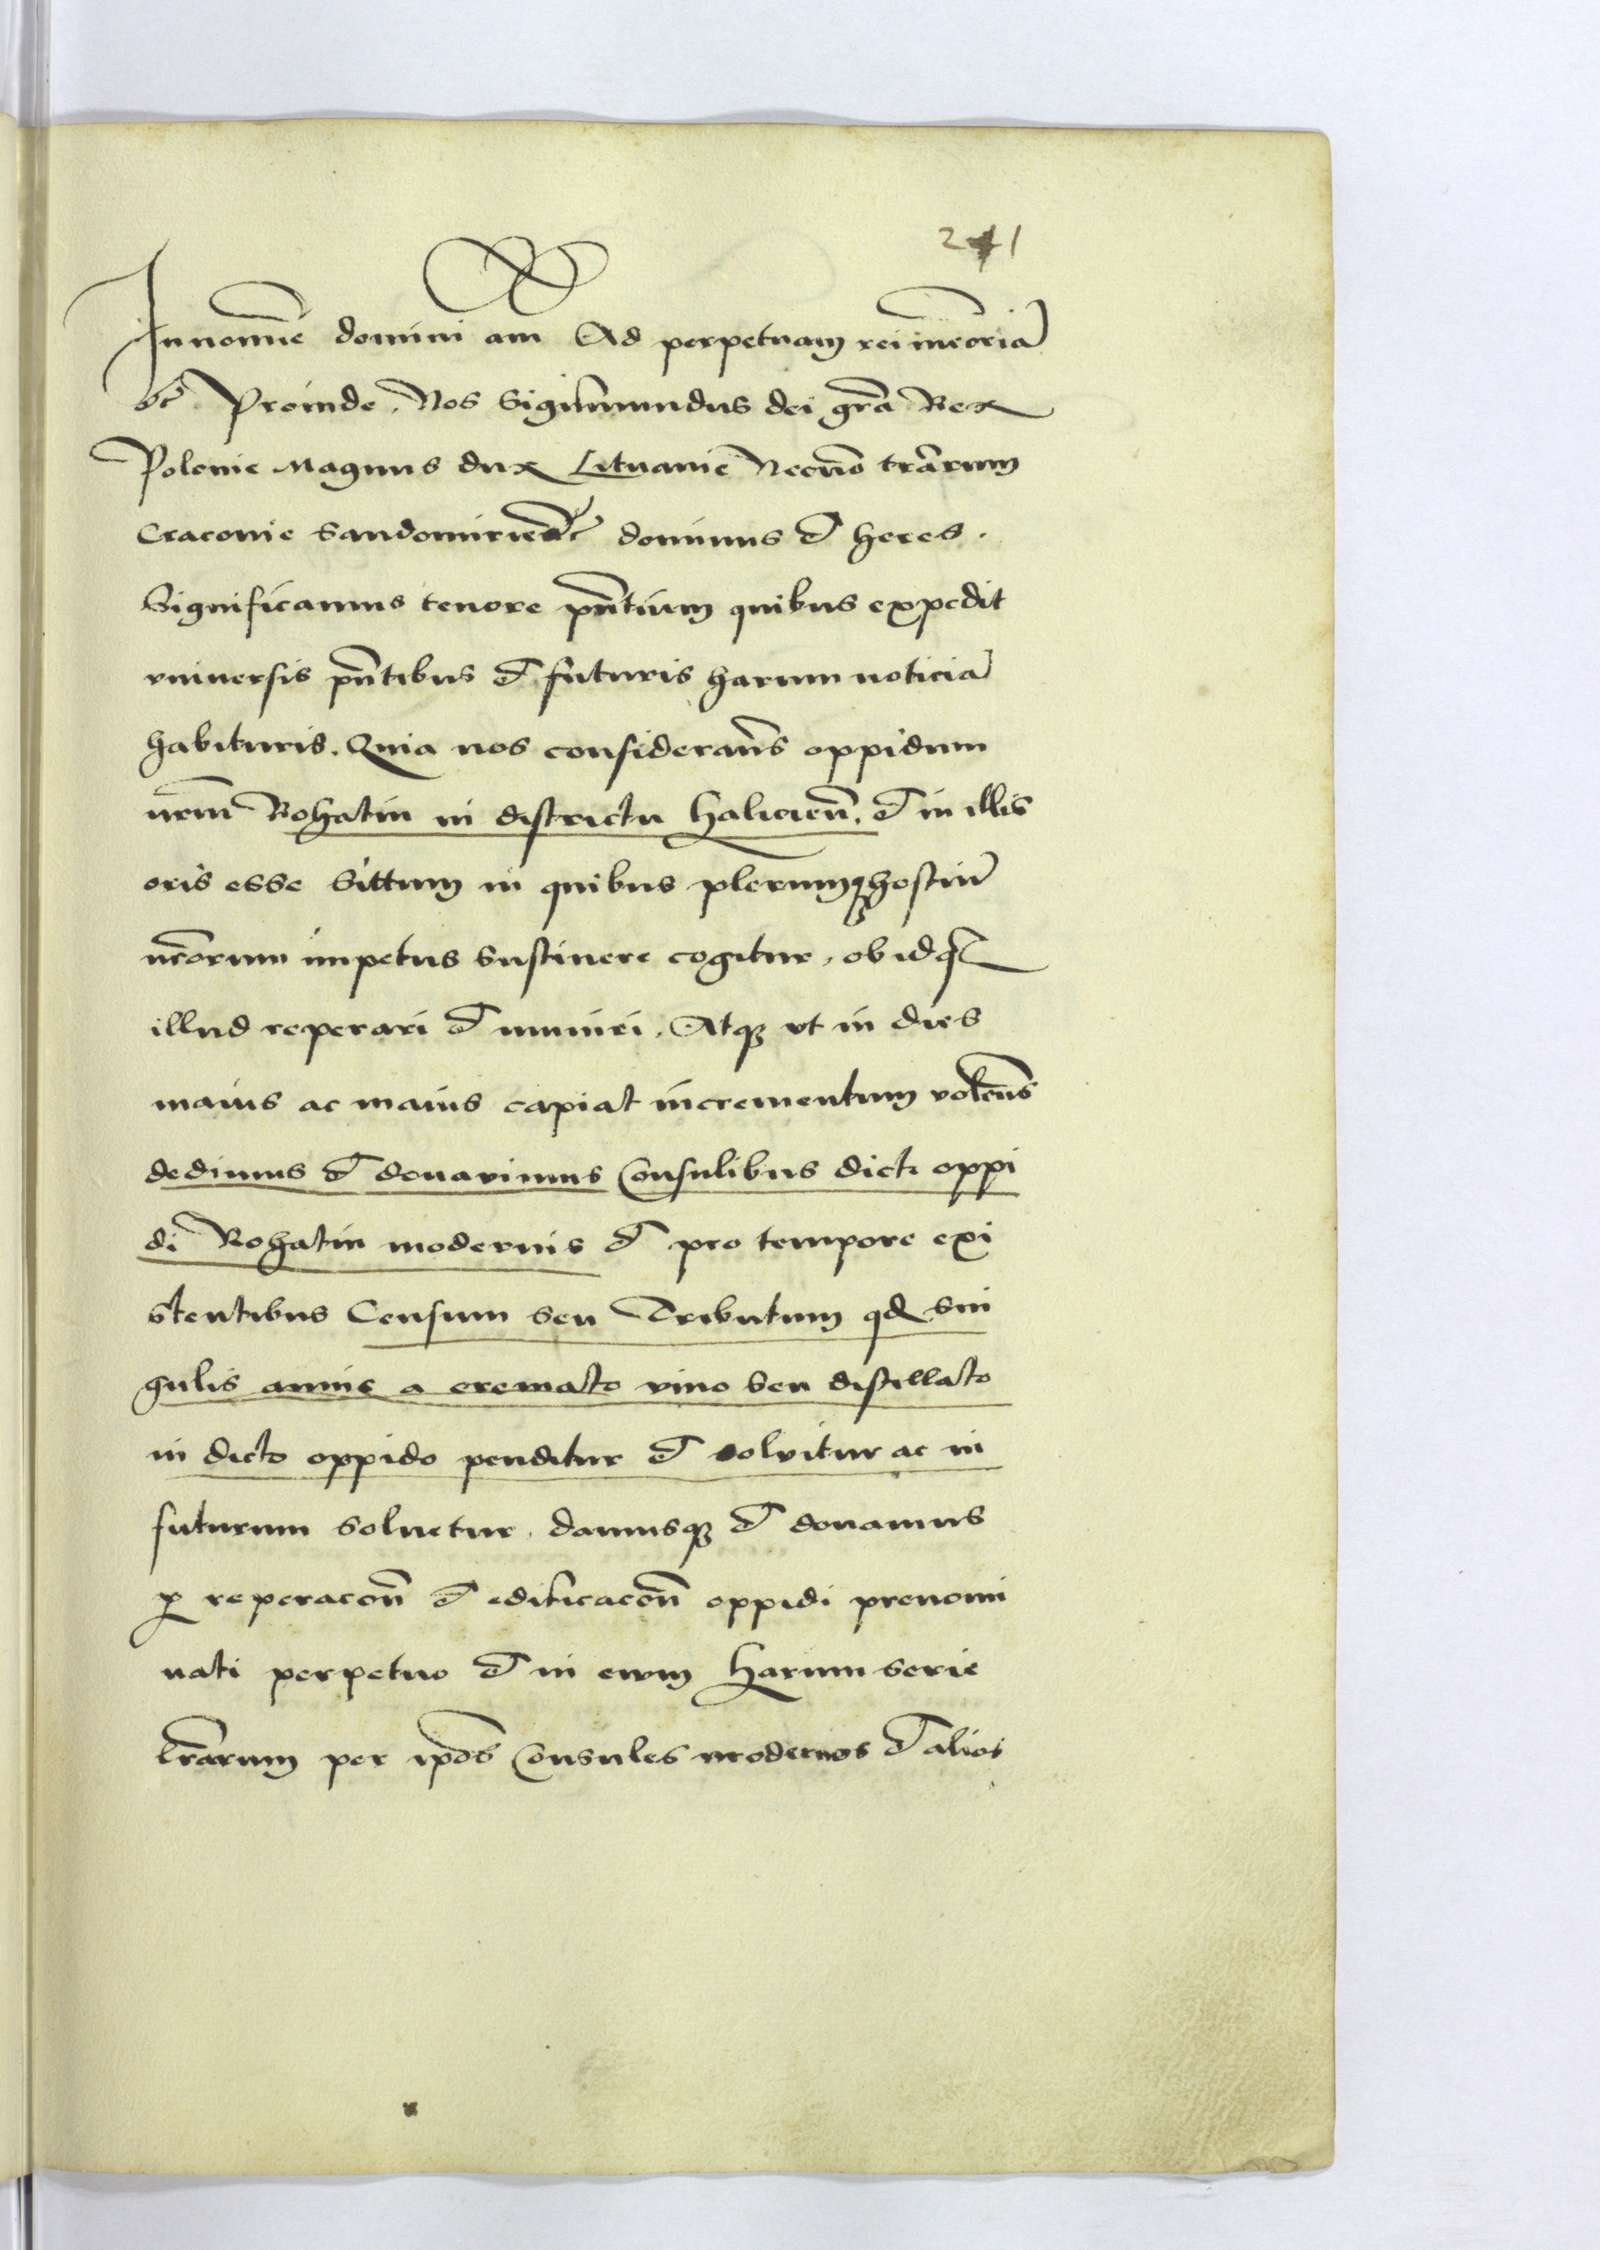 241
In nomine domini am Ad perpetuam rei meoriã
etc Proinde. Nos Sigismundus dei gr̃a Rex
Polonie Magnus dux Lituanie Necnõ tr̃arum
Cracovie Sandomirieñ etc dominus et heres.
Significamus tenore pñtium quibus expedit
vniuersis pñtibus et futuris harum noticiã
habituris. Quia nos considerañs oppidum
nr̃m Rohatin in districtu halicieñ. et in illis
oris esse Sittum in quibus plerumq hostiũ
nr̃orum impetus sustinere cogitur, ob idq
illud reperari et muniri. Atq ut in dies
maius ac maius capiat incrementum voleñs
dedimus et donauimus Consulibus dicti oppi
di Rohatin modernis et pro tempore exi
stentibus Censum seu Tributum qd sin
gulis annis a cremato vino seu distillato
in dicto oppido penditur et solvitur ac in
futurum soluetur, damusq et donamus
p reperacoñ et edificacoñ oppidi prenomi
nati perpetuo et in ewm harum serie
lr̃arum per ip̃os Consules modernos et alios